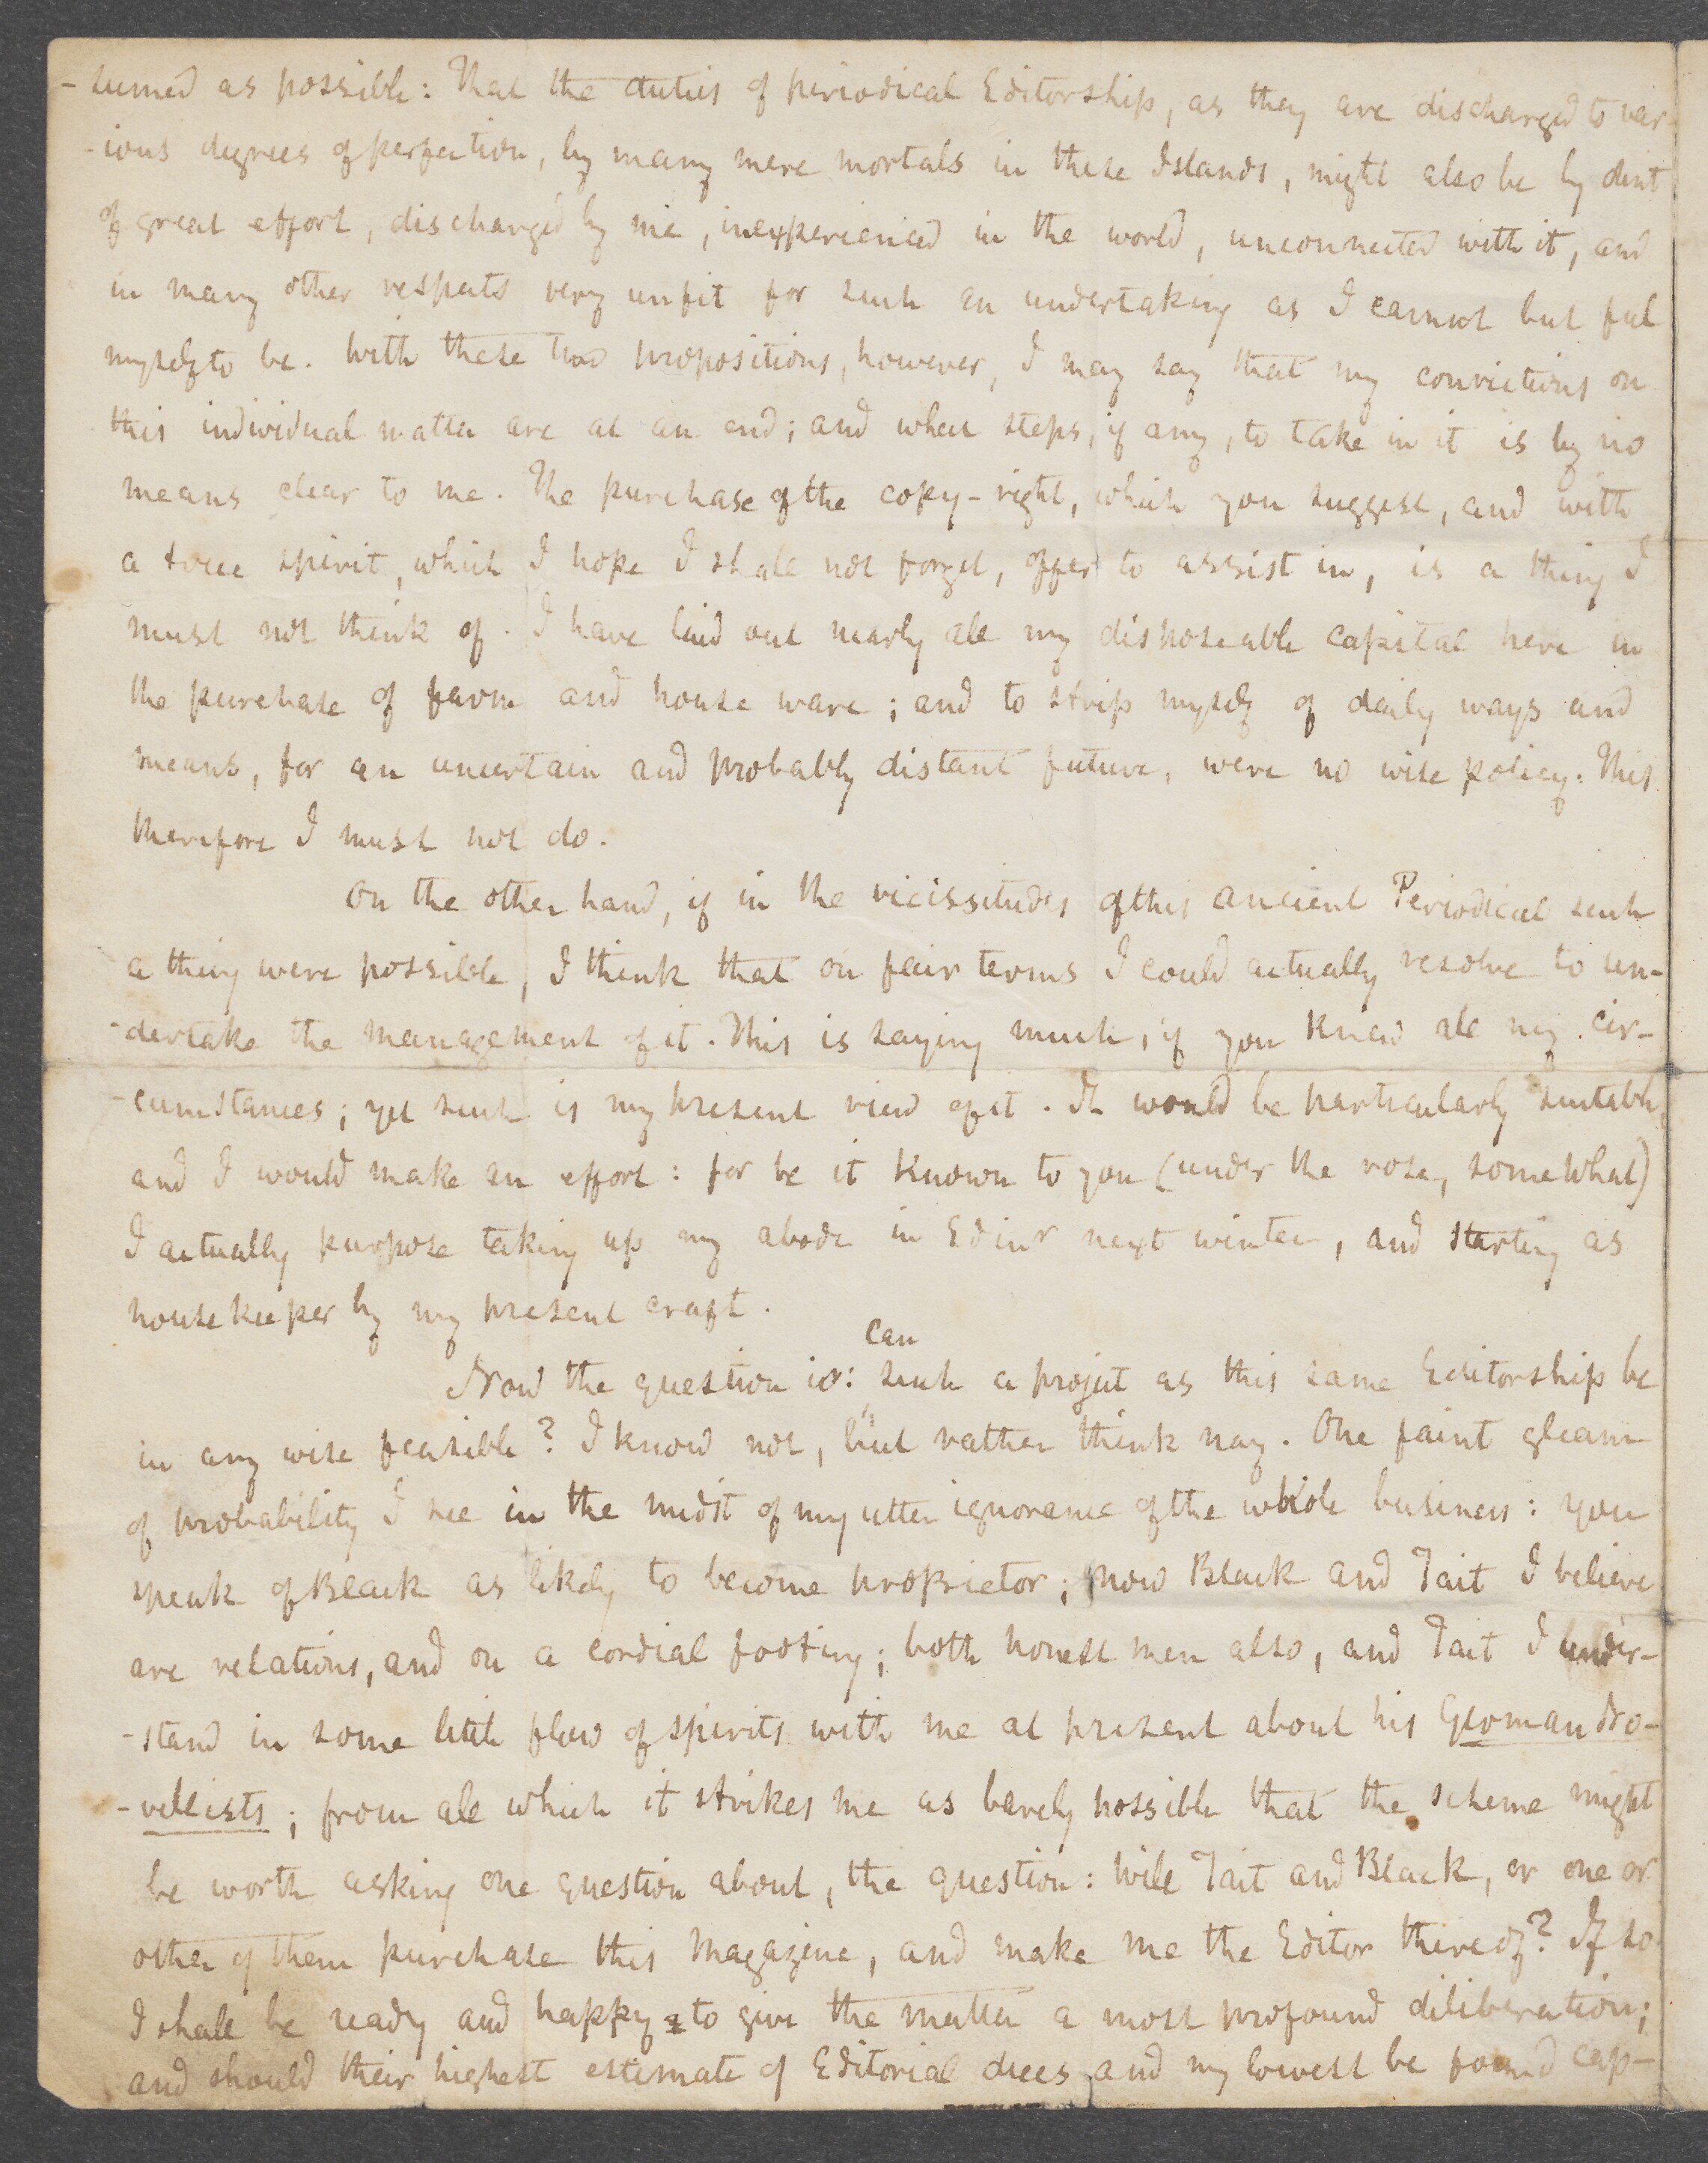 -sumed as possible: That the duties of periodical Editorship, as they are discharged to var-
-ious degrees of perfection, by many mere mortals in these Islands, might also be by dint
of great effort, discharged by me, inexperienced in the world, unconnected with it, and
in many other respects very unfit for such an undertaking as I cannot but feel
myself to be. With these two propositions, however, I may say that my convictions on
this individual matter are at an end; and what steps, if any, to take in it is by no
means clear to me. The purchase of the copy-right, which you suggest, and with
a true spirit, which I hope I shall not forget, offer to assist in, is a thing I
must not think of. I have laid out nearly all my disposeable capital here in
the purchase of farm and house ware; and to strip myself of daily ways and
means, for an uncertain and probably distant future, were no wise policy. This
therefore I must not do.
On the other hand, if in the vicissitudes of this ancient Periodical such
a thing were possible, I think that on fair terms I could actually resolve to un-
-dertake the management of it. This is saying much, if you knew all my cir-
-cumstances; yet such is my present view of it. It would be particularly suitable,
and I would make an effort: for be it known to you (under the rose, somewhat)
I actually purpose taking up my abode in Edinr next winter, and starting as
housekeeper by my present craft.
can
Now the question is: such a project as this same Editorship be
in any wise feasible? I know not, but rather think nay. One faint gleam
of probability I see in the midst of my utter ignorance of the whole business: you
speak of Black as likely to become proprietor; now Black and Tait I believe
are relations, and on a cordial footing; both honest men also, and Tait I under-
-stand in some little flow of spirits with me at present about his German No-
-vellists; from all which it strikes me as barely possible that the scheme might
be worth asking one question about, the question: Will Tait and Black, or one or
other of them purchase this Magazine, and make me the Editor thereof? If so
I shall be ready and happy to give the matter a most profound deliberation;
and should their highest estimate of Editorial dues and my lowest be found cap-